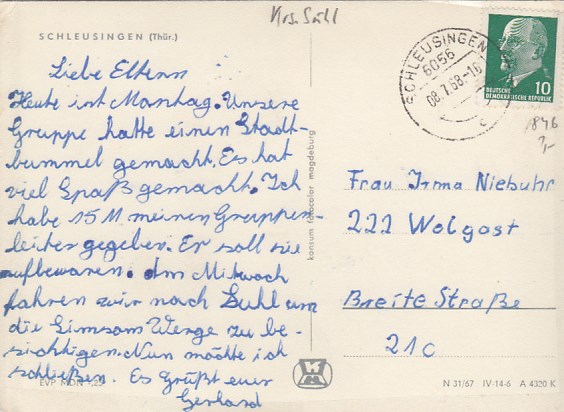 Krs. Suhl
SCHLEUSINGEN (Thür.)
Liebe Eltern
Heute ist Montag. Unsere
Gruppe hatte einen Stadt-
bummel gemacht. Es hat
viel Spaß gemacht. Ich
habe 15 M meinen Gruppen-
leiter gegeben. Er soll sie
aufbewaren. Am Mittwoch
fahren wir nach Suhl um
die Simson Werge zu be-
sichtigen. Nun möchte ich
schließen. Es Grüßt euer
Gerhard
EVP MDN
kontum fotocolor magdeburg
SCHLEUSINGEN
6056
08.7.68.-16
c
10
DEUTSCHE
DEMOKRATISCHE REPUBLIK
1846
Frau Irma Niebuhr
222 Wolgast
Breite Straße
21c
N 31/67 IV-14-6 A 4320 K